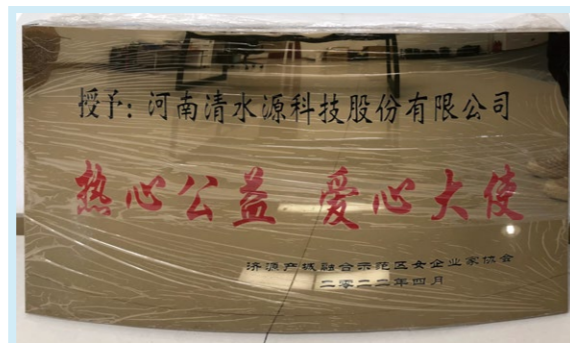 授予：河南清水源科技股份有限公司
热心公益 爱心大使
济源产城融合示范区女企业家协会
二零二二年四月